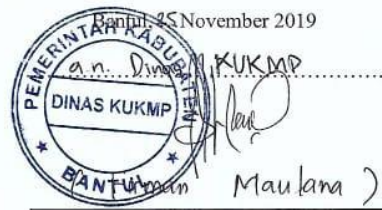 Bantul, 25 November 2019
a.n. Dinas KUKMP
PEMERINTAH KABUPATEN
DINAS KUKMP
BANTUL
Maulana )